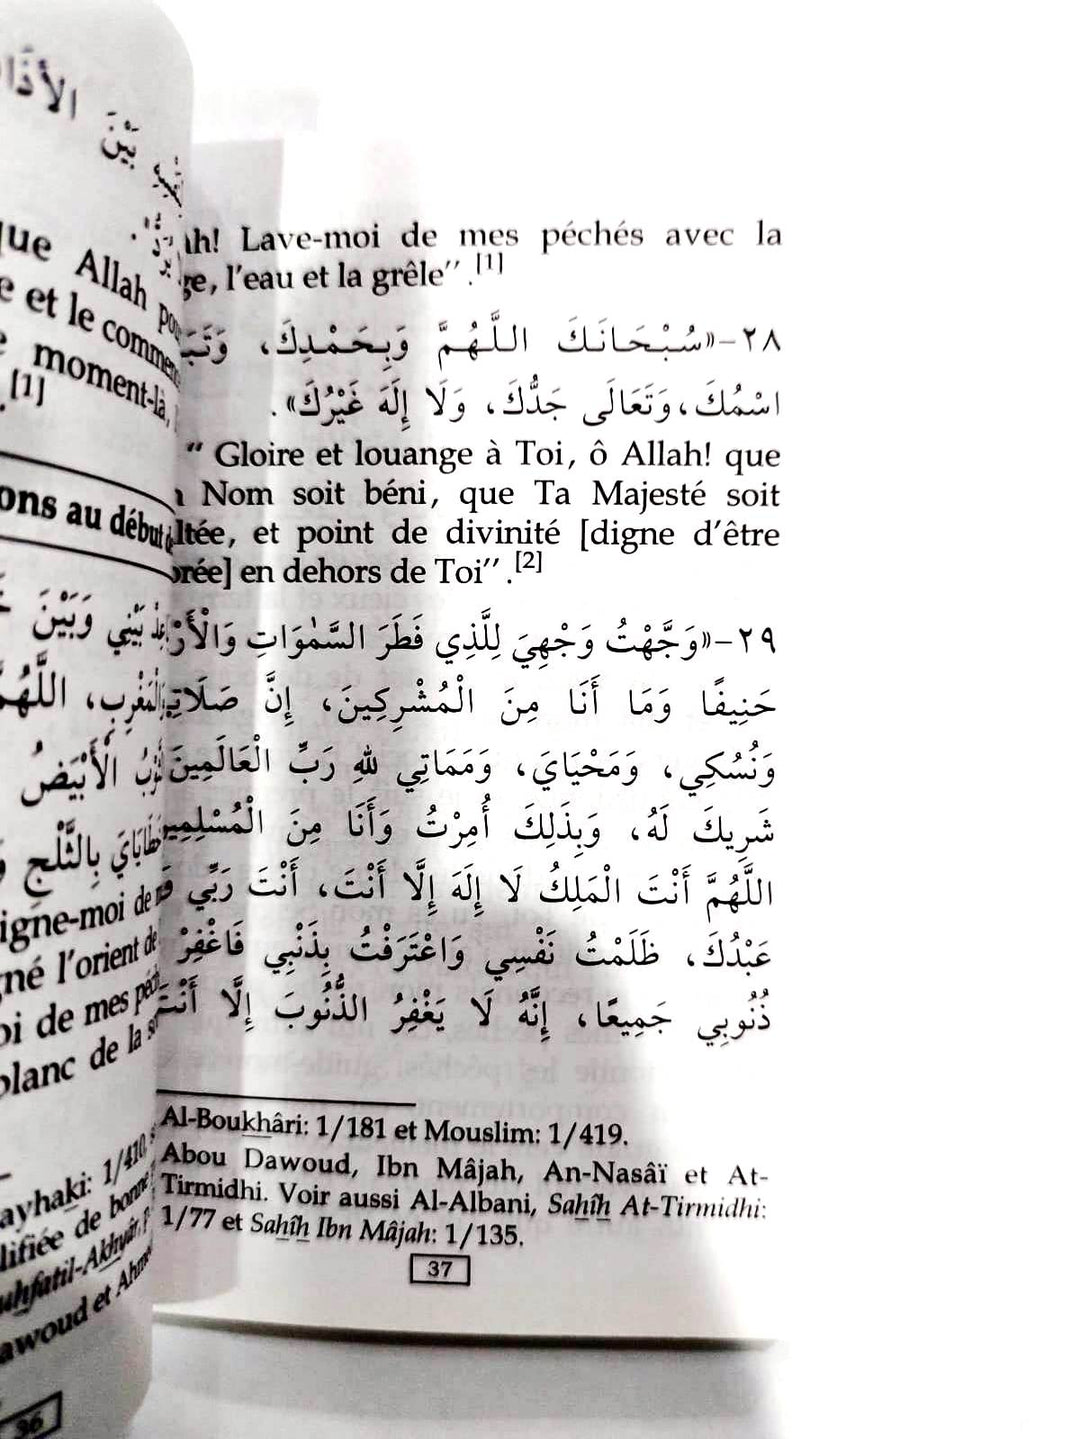 الأذا
بَيْنَ
que Allah
e et le comme
moment-là,
.[1]
ons au début
بَيْنِي وَبَيْنَ
اللَّهُمَّ
الْأَبْيَضُ
بِالثَّلْجِ
igne-moi de
né l'orient de
oi de mes
blanc de la
ayhaki: 1/410,
lifiée de bonne
uhfatil-Akhyâr,
awoud et Ahm
36
ah! Lave-moi de mes péchés avec la
ge, l'eau et la grêle".[1]
٢٨-«سُبْحَانَكَ اللَّهُمَّ وَبِحَمْدِكَ، وَتَبَ
اسْمُكَ، وَتَعَالَى جَدُّكَ، وَلَا إِلَهَ غَيْرُكَ».
" Gloire et louange à Toi, ô Allah! que
Nom soit béni, que Ta Majesté soit
ltée, et point de divinité [digne d'être
orée] en dehors de Toi".[2]
٢٩-«وَجَّهْتُ وَجْهِيَ لِلَّذِي فَطَرَ السَّمٰوَاتِ وَالْأَرْ
حَنِيفًا وَمَا أَنَا مِنَ الْمُشْرِكِينَ، إِنَّ صَلَاتِي
وَنُسُكِي، وَمَحْيَايَ، وَمَمَاتِي لِلهِ رَبِّ الْعَالَمِينَ
شَرِيكَ لَهُ، وَبِذَلِكَ أُمِرْتُ وَأَنَا مِنَ الْمُسْلِمِينَ
اللَّهُمَّ أَنْتَ الْمَلِكُ لَا إِلَهَ إِلَّا أَنْتَ، أَنْتَ رَبِّي وَ
عَبْدُكَ، ظَلَمْتُ نَفْسِي وَاعْتَرَفْتُ بِذَنْبِي فَاغْفِرْ
ذُنُوبِي جَمِيعًا، إِنَّهُ لَا يَغْفِرُ الذُّنُوبَ إِلَّا أَنْتَ
Al-Boukhâri: 1/181 et Mouslim: 1/419.
Abou Dawoud, Ibn Mâjah, An-Nasâï et At-
Tirmidhi. Voir aussi Al-Albani, Sahîh At-Tirmidhi:
1/77 et Sahîh Ibn Mâjah: 1/135.
37